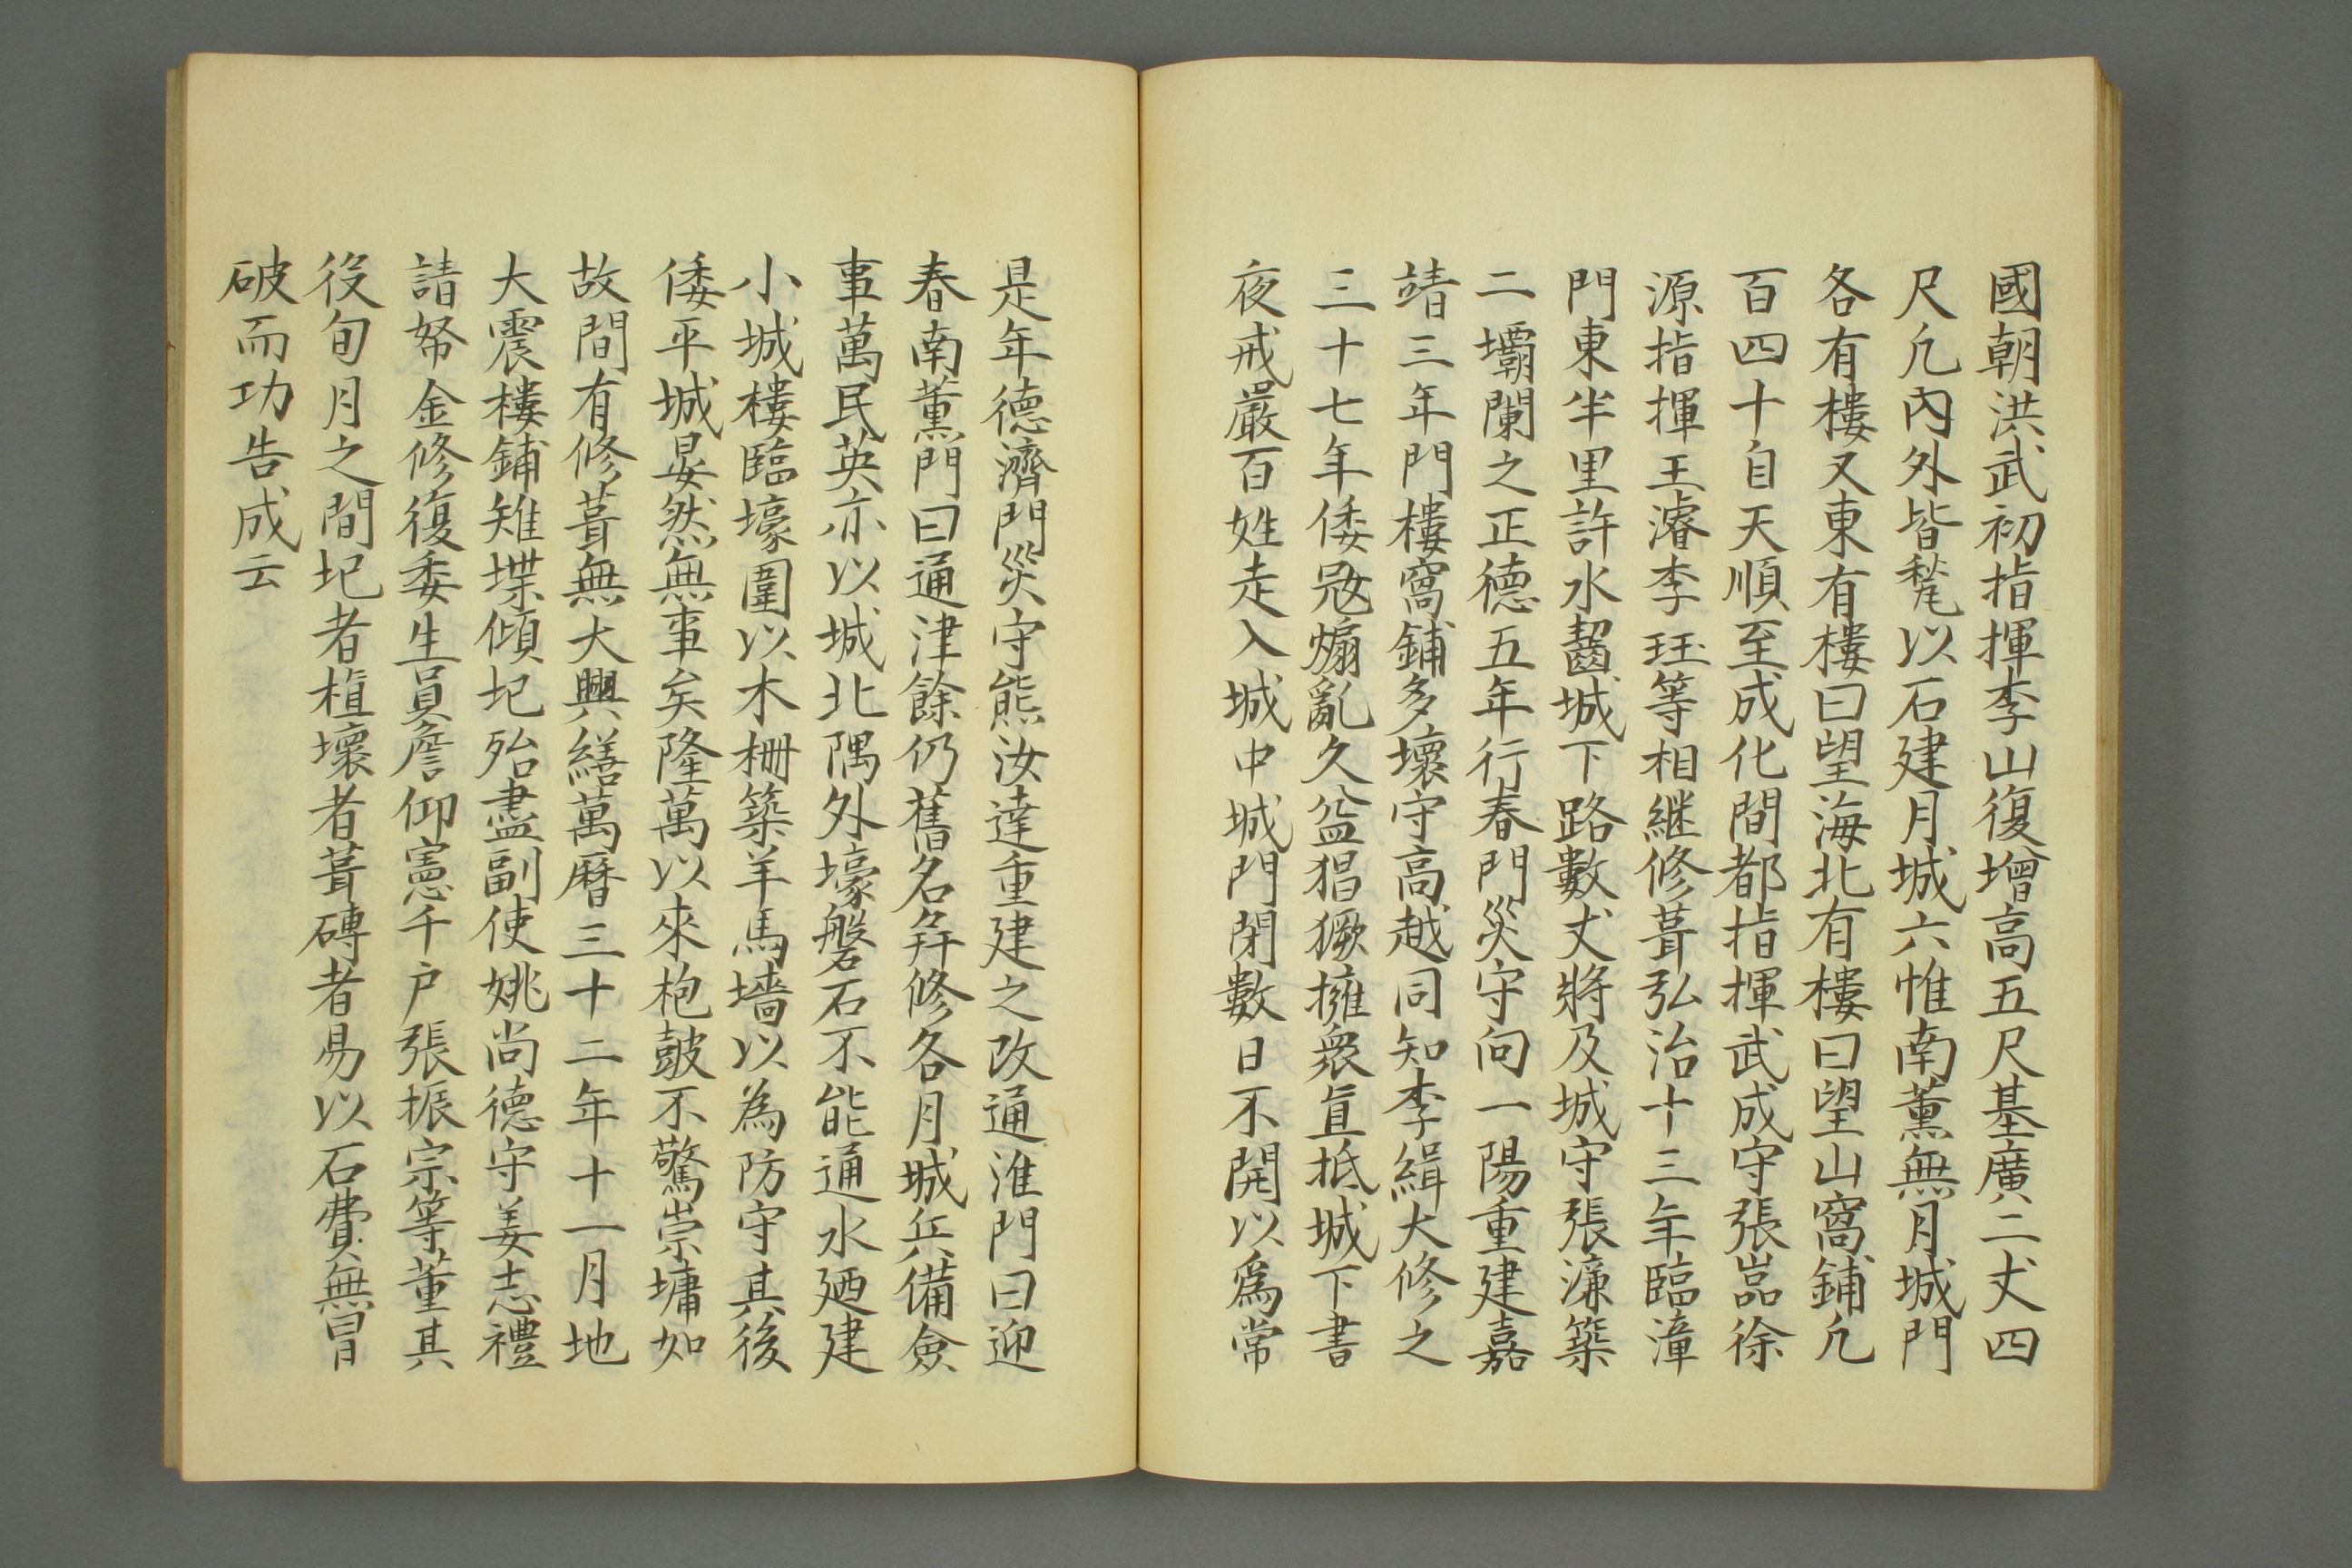 國朝洪武初指揮李山復增高五尺基廣二丈四
尺凢內外皆甃以石建月城六惟南薰無月城門
各有樓又東有樓曰望海北有樓曰望山窩鋪凢
百四十自天順至成化間都指揮武成守張嵓徐
源指揮王濬李珏等相継修葺弘治十三年臨漳
門東半里許水齧城下路數丈將及城守張濂築
二壩闌之正德五年行春門災守向一陽重建嘉
靖三年門樓窩鋪多壞守高越同知李緝大修之
三十七年倭冦煽亂久益猖獗擁衆直抵城下書
夜戒嚴百姓走入城中城門閉數日不開以爲常
是年德濟門災守熊汝達重建之改通淮門曰迎
春南薰門曰通津餘仍舊名幷修各月城兵備僉
事萬民英亦以城北隅外壕磐石不能通水廼建
小城樓臨壕圍以木柵築羊馬墻以為防守其後
倭平城晏然無事矣隆萬以來枹皷不驚崇墉如
故間有修葺無大興繕萬曆三十二年十一月地
大震樓鋪雉堞傾圮殆盡副使姚尚德守姜志禮
請帑金修復委生員詹仰憲千户張振宗等董其
役旬月之間圮者植壞者葺磚者易以石費無冒
破而功告成云